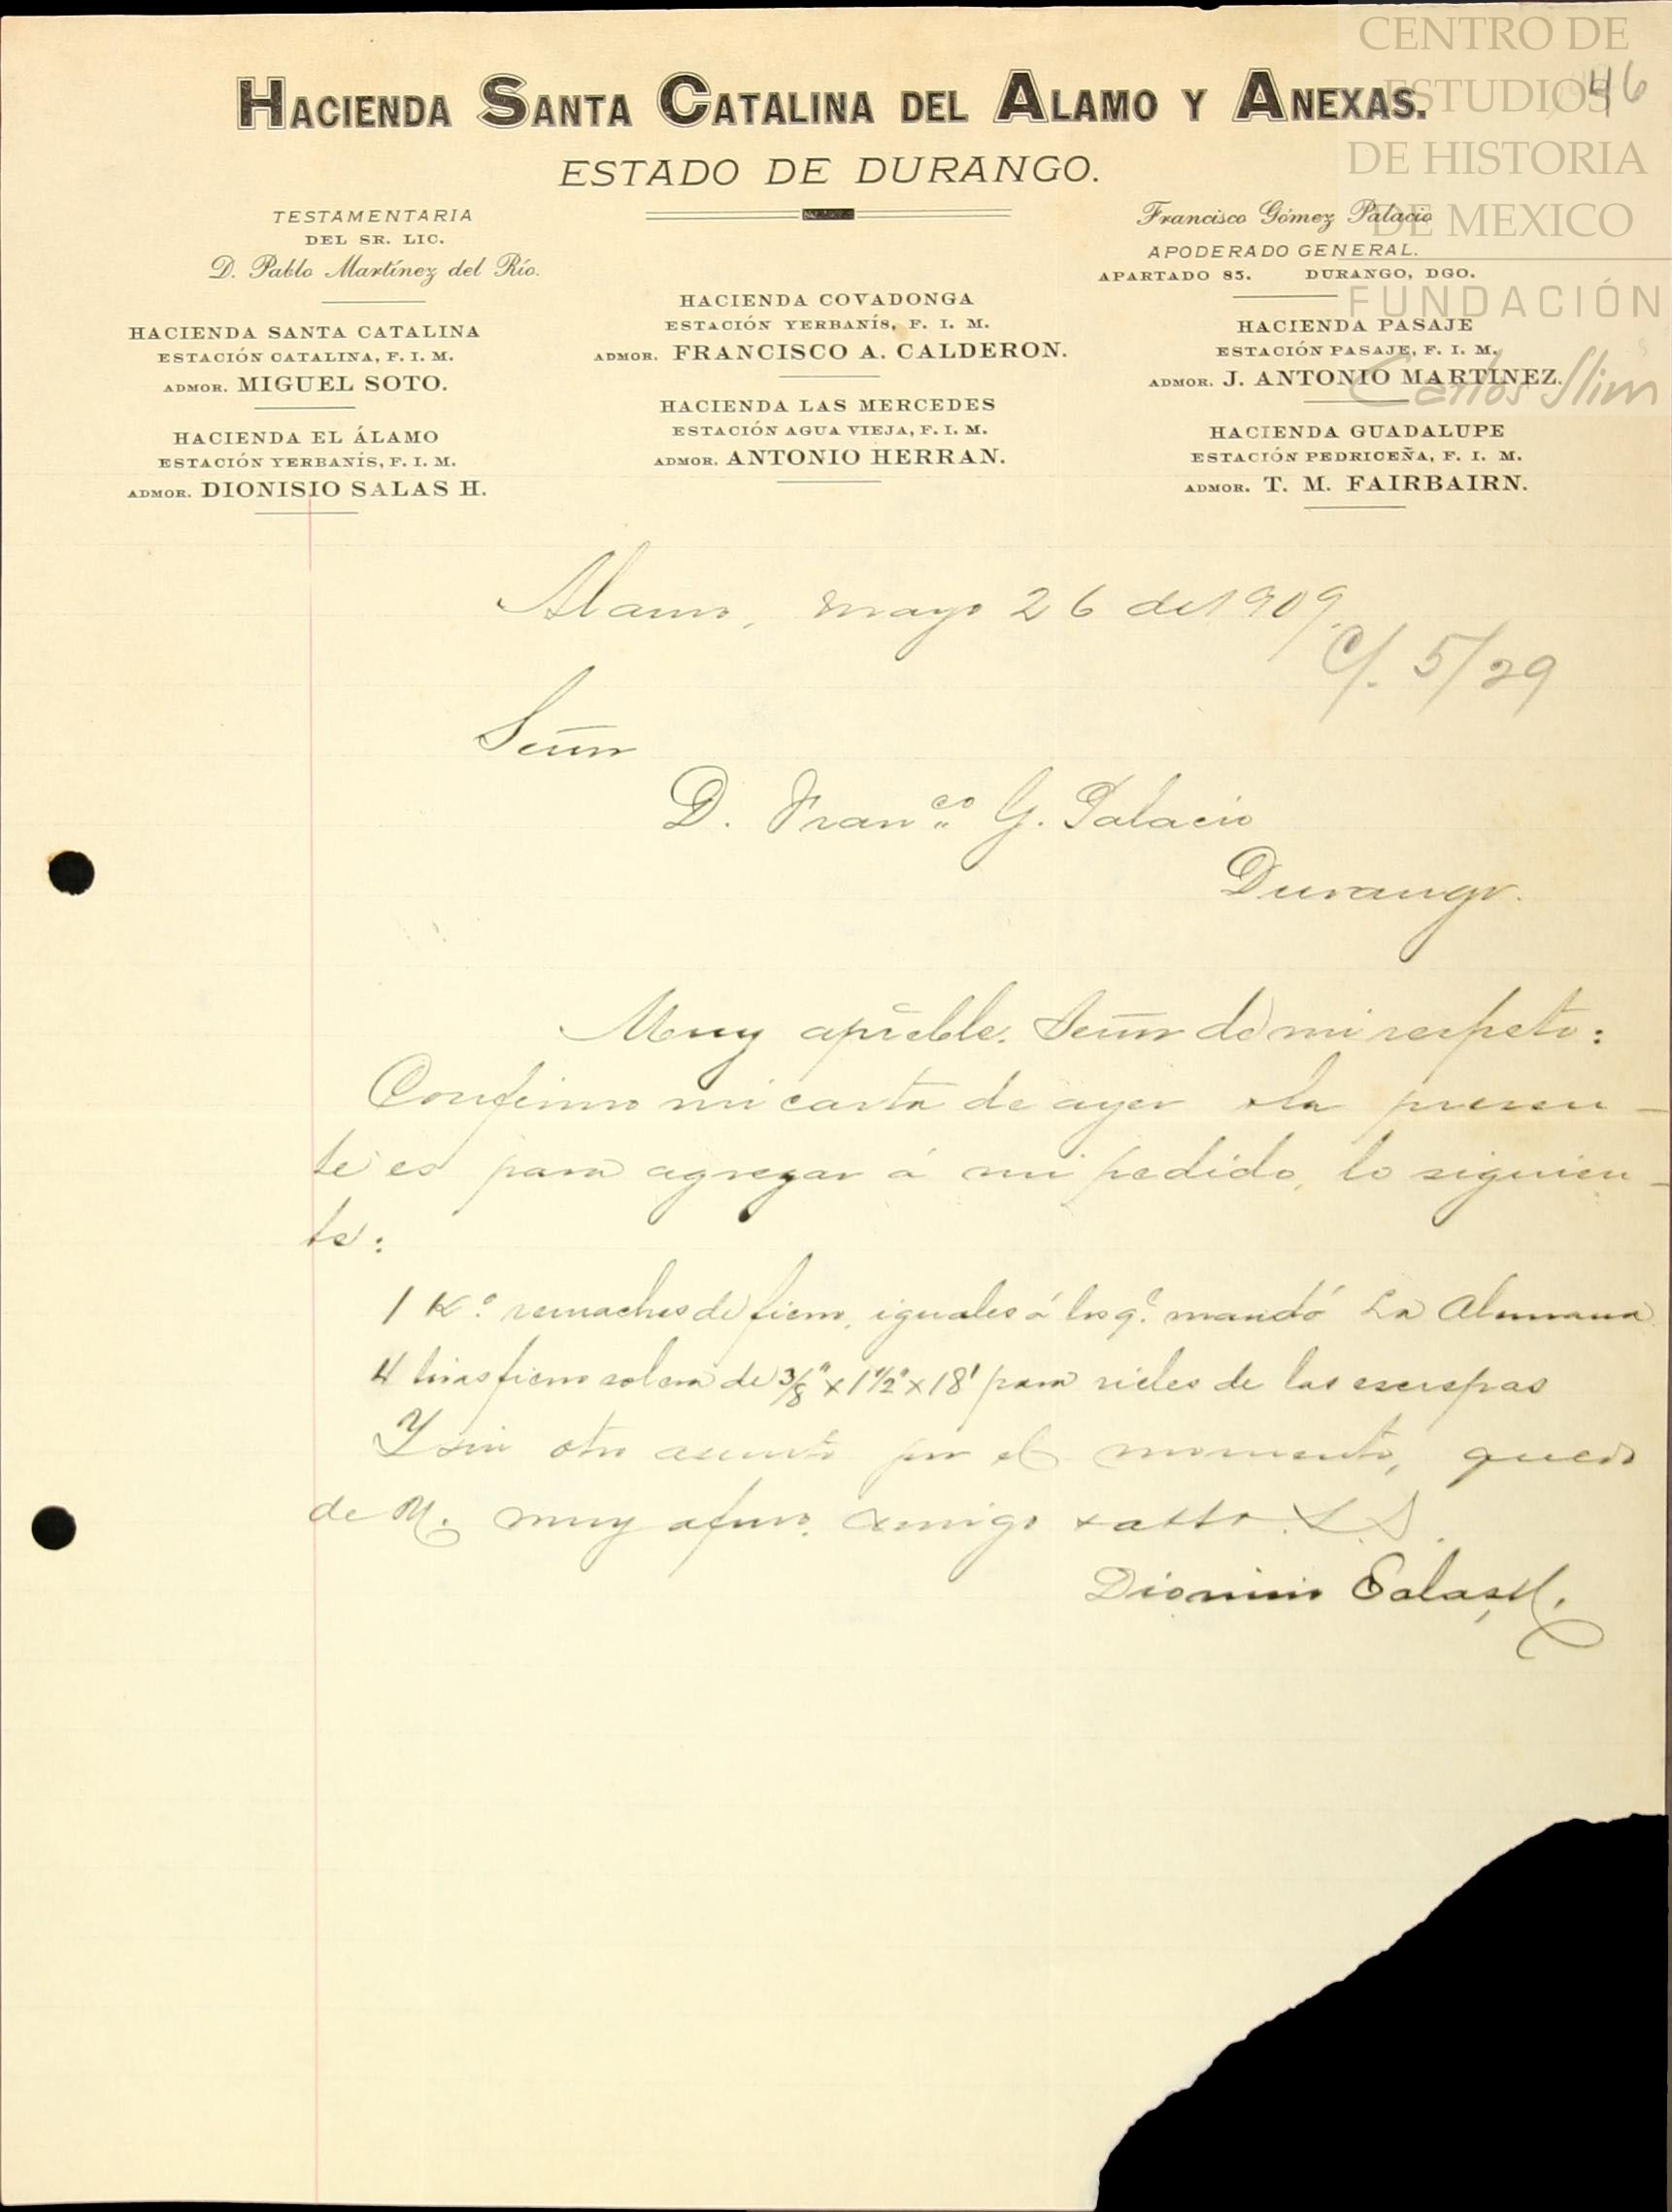 CENTRO DE
ESTUDIOS
DE HISTORIA
DE MEXICO
FUNDACIÓN
Carlos Slim
46
HACIENDA SANTA CATALINA DEL ALAMO Y ANEXAS.
ESTADO DE DURANGO.
TESTAMENTARIA
DEL SR. LIC.
D. Pablo Martínez del Río.
HACIENDA SANTA CATALINA
ESTACIÓN CATALINA, F. I. M.
ADMOR. MIGUEL SOTO.
HACIENDA EL ÁLAMO
ESTACIÓN YERBANÍS, F. I. M.
ADMOR. DIONISIO SALAS H.
HACIENDA COVADONGA
ESTACIÓN YERBANÍS, F. I. M.
ADMOR. FRANCISCO A. CALDERON.
HACIENDA LAS MERCEDES
ESTACIÓN AGUA VIEJA, F. I. M.
ADMOR. ANTONIO HERRAN.
Francisco Gómez Palacio
APODERADO GENERAL.
APARTADO 85. DURANGO, DGO.
HACIENDA PASAJE
ESTACIÓN PASAJE, F. I. M.
ADMOR. J. ANTONIO MARTINEZ.
HACIENDA GUADALUPE
ESTACIÓN PEDRICEÑA, F. I. M.
ADMOR. T. M. FAIRBAIRN.
Alamo, mayo 26 de 1909.
C/. 5/29
Señor
D. Franco. G. Palacio
Durango.
Muy apreble. Señor de mi respeto:
Confirmo mi carta de ayer i la presen-
te es para agregar á mi pedido, lo siguien-
te:
1 Ko. remaches de fierro, iguales á los q. mandó La Alemana
4 tiras fierro solera de 3/8" x 1 1/2" x 18' para rieles de las escrepas
Y sin otro asunto por el momento, quedo
de U. muy afmo. amigo i atto. S. S.
Dionisio Salas H.